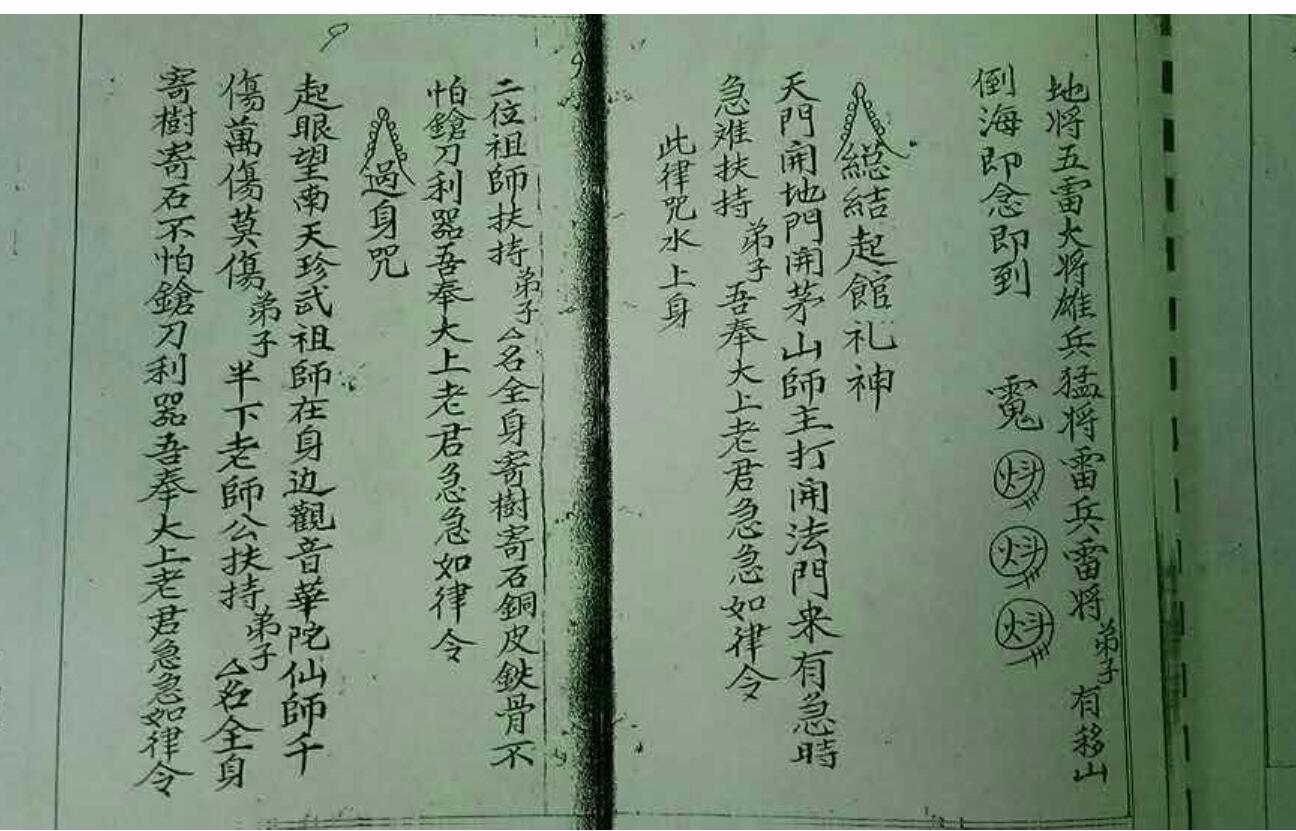 地将五雷大将雄兵猛将雷兵雷将弟子有移山
倒海即念即到
總結起館礼神
天門開地門開茅山師主打開法門来有急時
急难扶持弟子吾奉大上老君急急如律令
此律咒水上身
二位祖師扶持弟子厶名全身寄樹寄石銅皮鉄骨不
怕鎗刀利器吾奉大上老君急急如律令
過身咒
起眼望南天珍武祖師在身边觀音華陀仙師千
傷萬傷莫傷弟子半下老師公扶持弟子厶名全身
寄樹寄石不怕鎗刀利器吾奉大上老君急急如律令